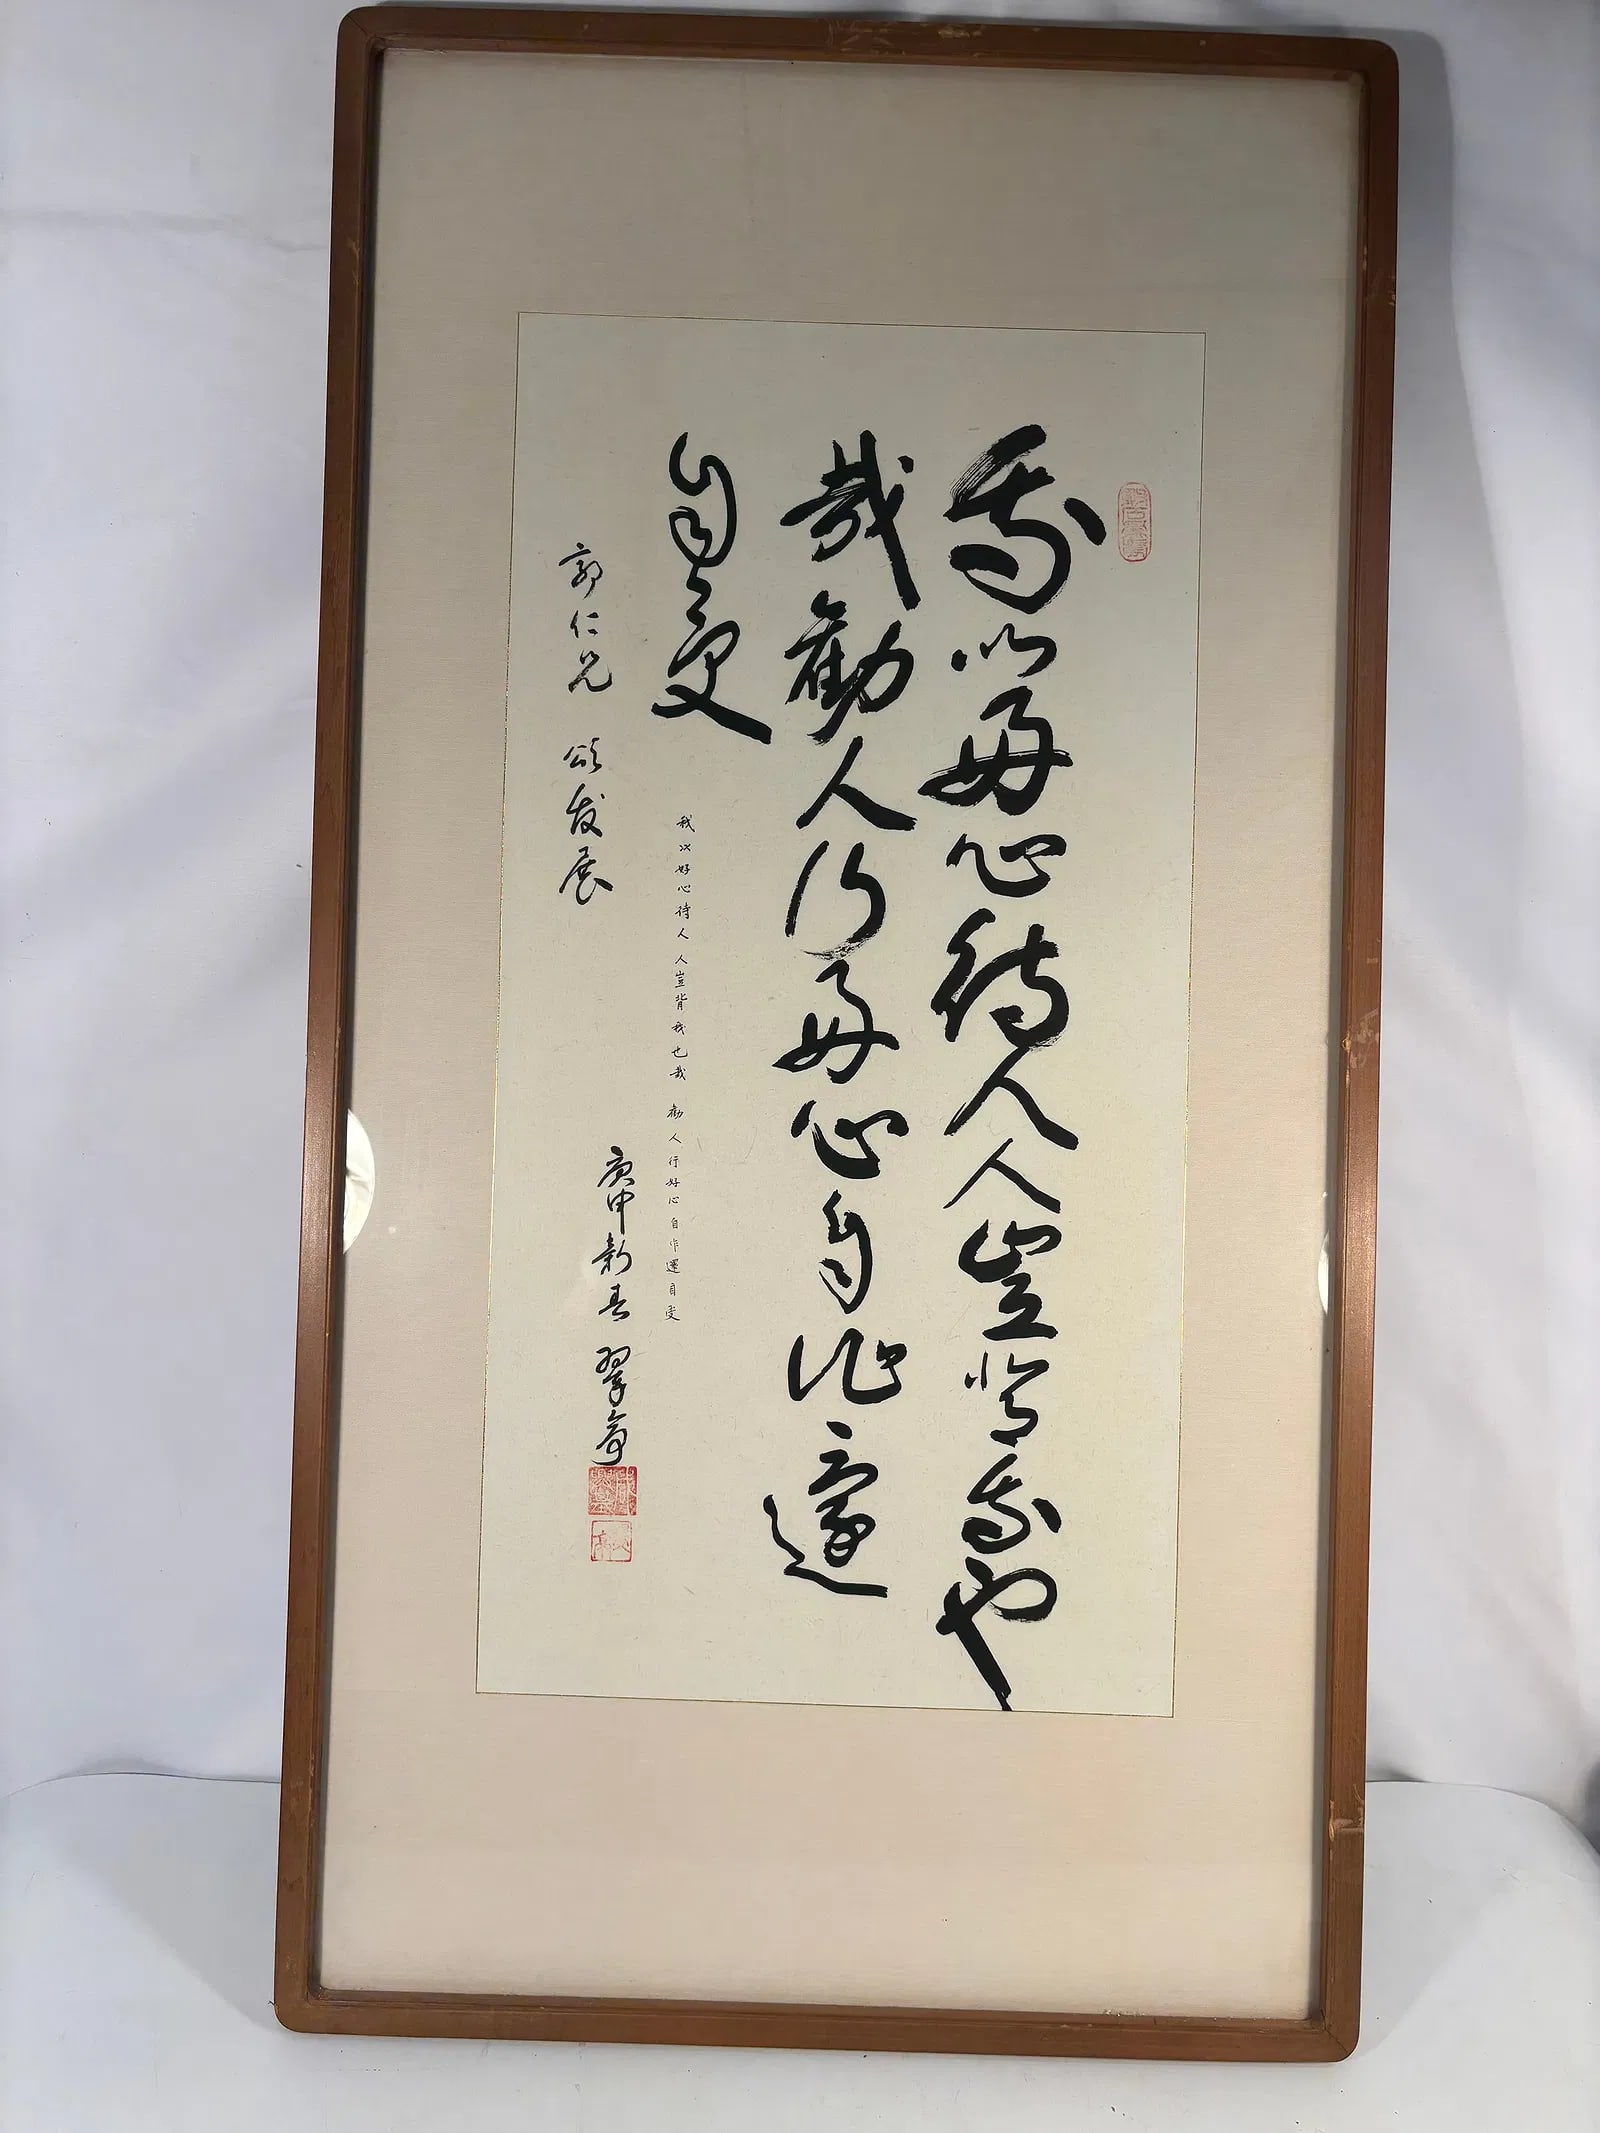 我以好心待人人豈背我也
哉勸人行好心自作還
自受
我以好心待人人豈背我也哉 勸人行好心自作還自受
郭仁兄 頌發展
庚申新春